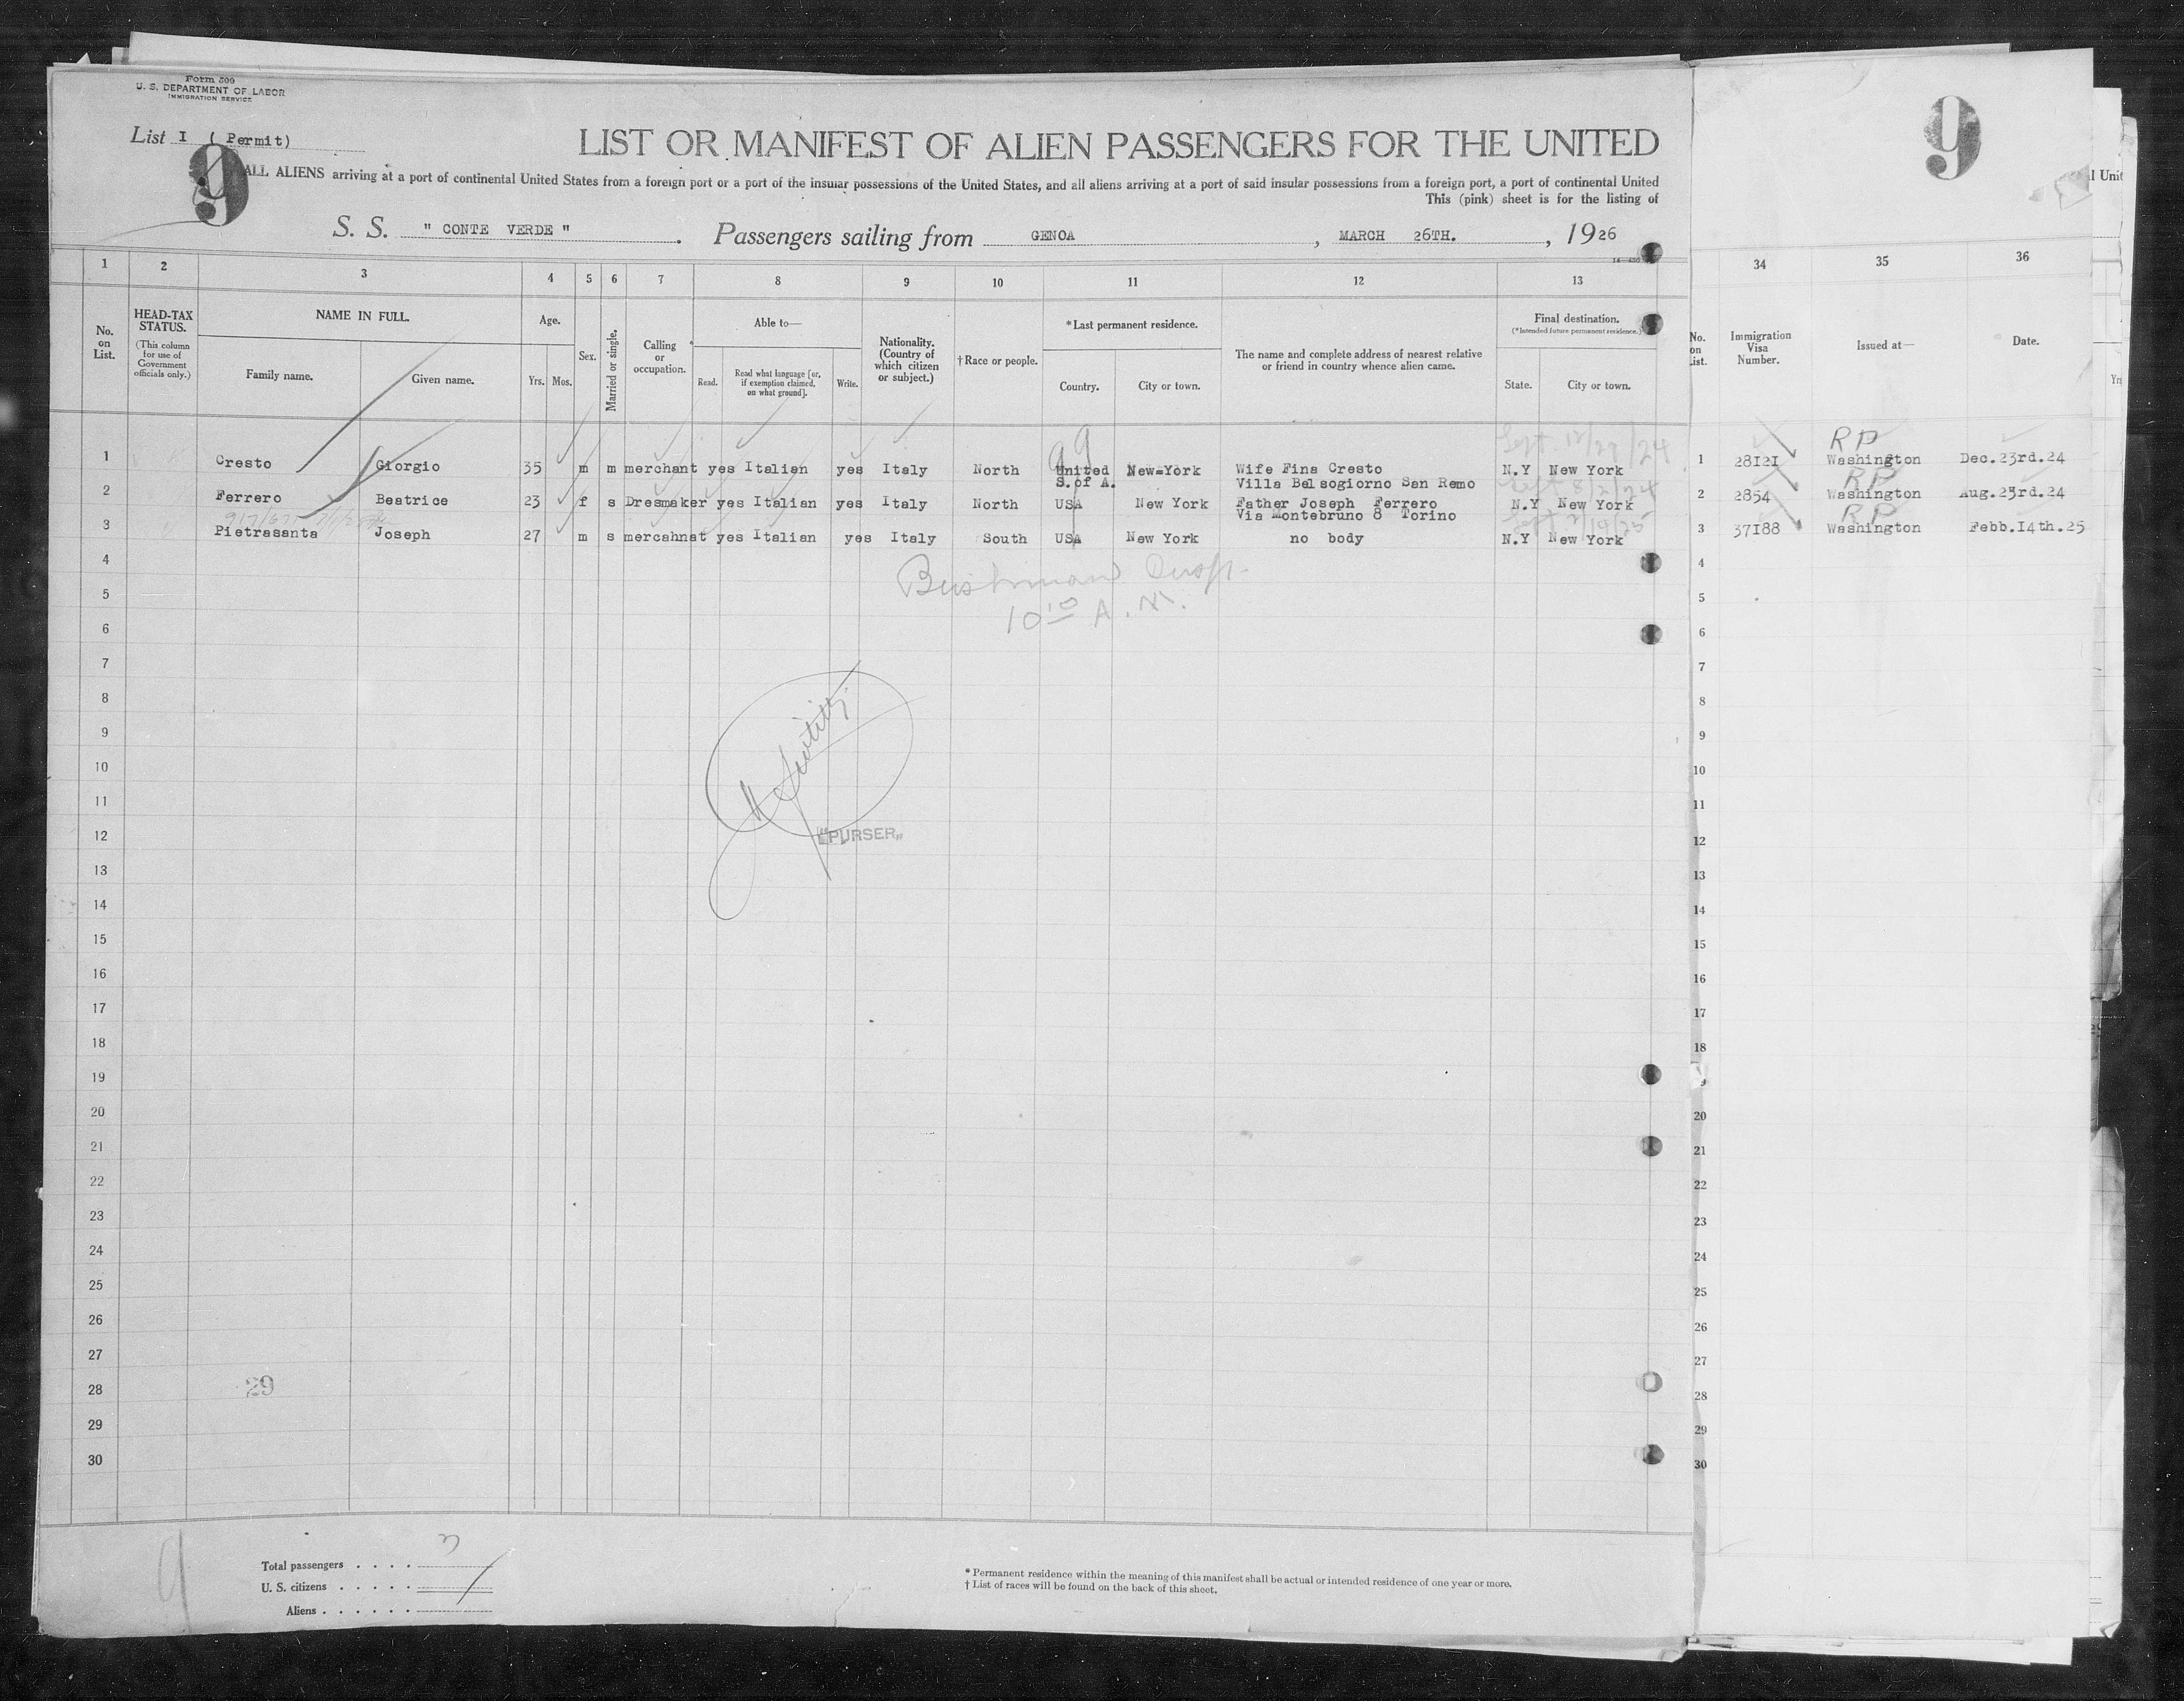 Form 500
U. S. DEPARTMENT OF LABOR
IMMIGRATION SERVICE
List I ( Permit)
9
LIST OR MANIFEST OF ALIEN PASSENGERS FOR THE UNITED
ALL ALIENS arriving at a port of continental United States from a foreign port or a port of the insular possessions of the United States, and all aliens arriving at a port of said insular possessions from a foreign port, a port of continental United
This (pink) sheet is for the listing of
S. S. " CONTE VERDE " . Passengers sailing from GENOA , MARCH 26TH. , 1926
1 2 3 4 5 6 7 8 9 10 11 12 13
No. on List.
HEAD-TAX STATUS.
(This column for use of Government officials only.)
NAME IN FULL.
Family name. Given name.
Age.
Yrs. Mos.
Sex.
Married or single.
Calling or occupation.
Able to—
Read. Read what language [or, if exemption claimed, on what ground]. Write.
Nationality. (Country of which citizen or subject.)
† Race or people.
* Last permanent residence.
Country. City or town.
The name and complete address of nearest relative or friend in country whence alien came.
Final destination.
(*Intended future permanent residence.)
State. City or town.
1 Cresto Giorgio 35 m m merchant yes Italian yes Italy North United S.of A. New-York Wife Fina Cresto N.Y New York
Villa Belsogiorno San Remo
2 Ferrero Beatrice 23 f s Dresmaker yes Italian yes Italy North USA New York Father Joseph Ferrero N.Y New York
Via Montebruno 8 Torino
3 Pietrasanta Joseph 27 m s mercahnat yes Italian yes Italy South USA New York no body N.Y New York
4
5
10 10 A.M.
6
7
8
9
10
11
12
"PURSER"
13
14
15
16
17
18
19
20
21
22
23
24
25
26
27
28
29
29
30
9
Total passengers . . . . 3
U. S. citizens . . . . .
Aliens . . . . . .
* Permanent residence within the meaning of this manifest shall be actual or intended residence of one year or more.
† List of races will be found on the back of this sheet.
9
34 35 36
No. on List.
Immigration Visa Number.
Issued at—
Date.
RP
1 28121 Washington Dec.23rd.24
RP
2 2854 Washington Aug.23rd.24
RP
3 37188 Washington Febb.14th.25
4
5
6
7
8
9
10
11
12
13
14
15
16
17
18
9
20
21
22
23
24
25
26
27
28
29
30